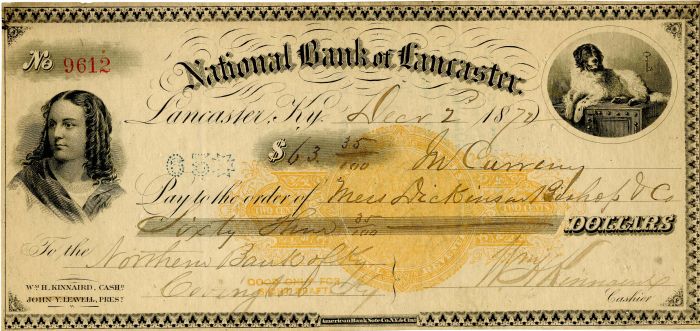 No 9612
National Bank of Lancaster.
Lancaster, Ky. Decr 2 187
$63. 35/100 In Currency
Pay to the order of Mess Dickinson Bishop & Co
Sixty Three 35/100 DOLLARS
TWO CENTS
To the Northern Bank of Ky
Covington Ky
GOOD ONLY FOR
Wm. H. KINNAIRD, CASHR.
JOHN Y. LEAVELL, PREST.
Cashier
American Bank Note Co. N.Y. & Cinti